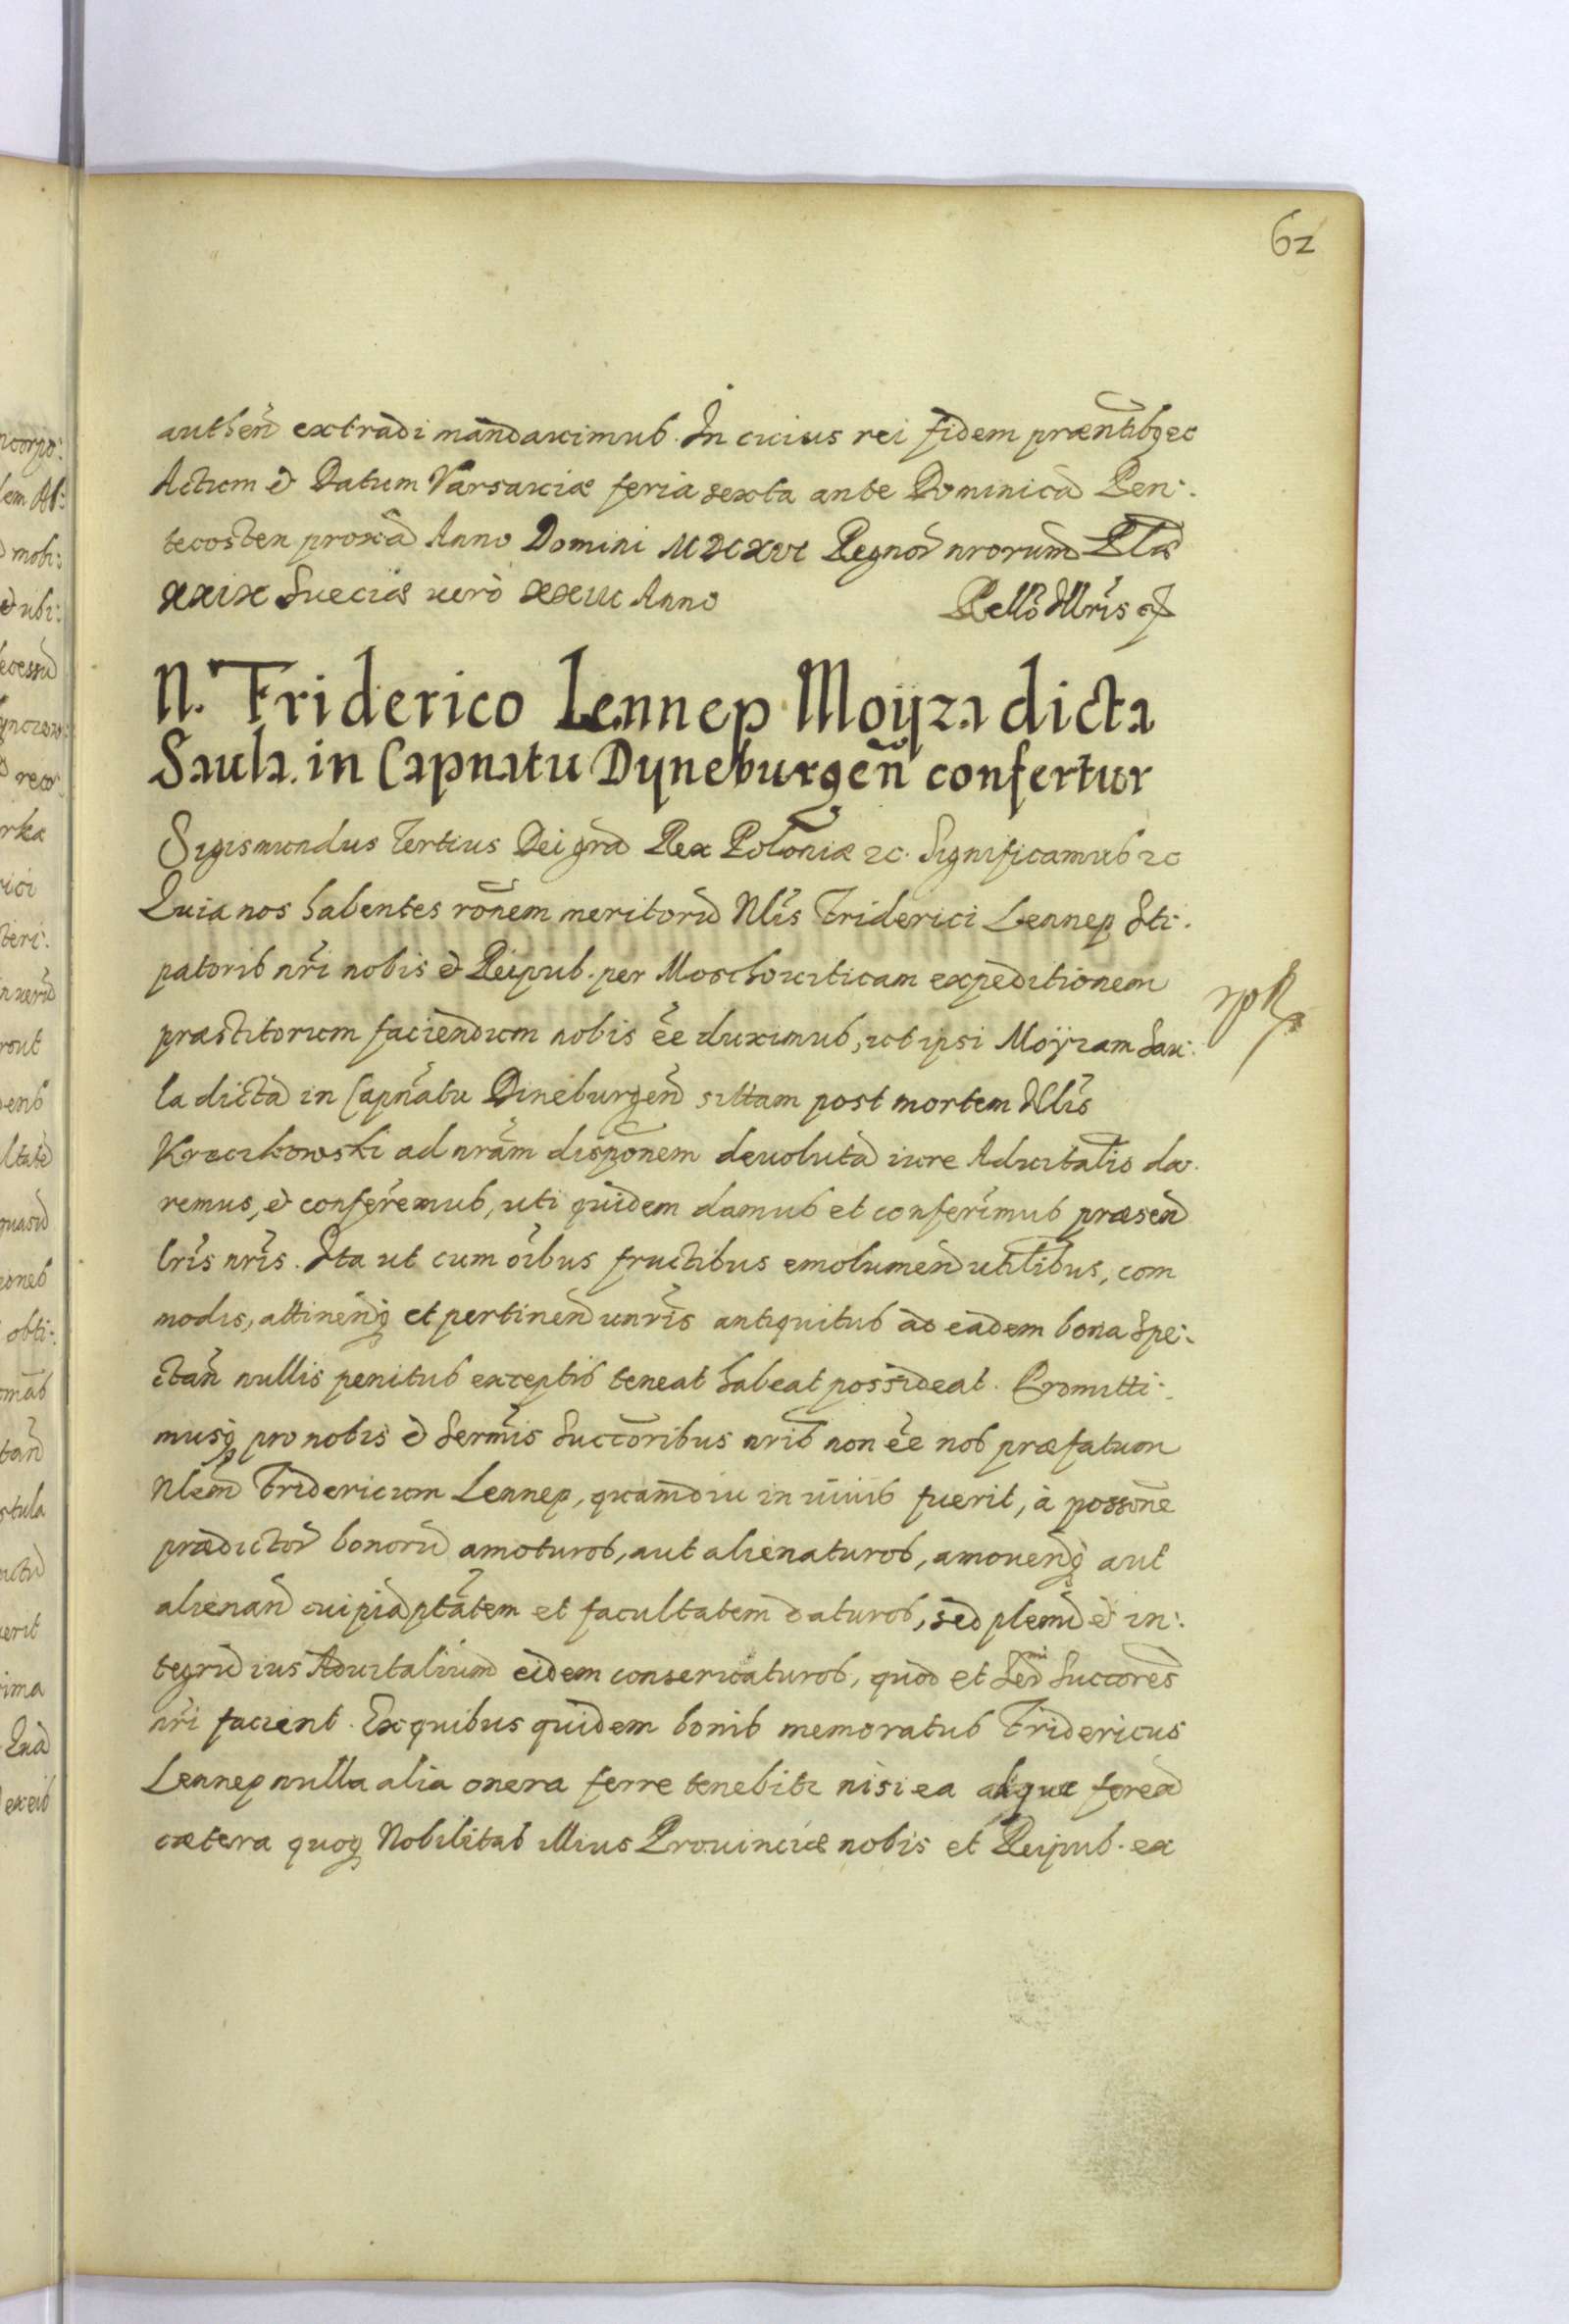 62
authen̄ extradi mandauimus. In cuius rei fidem præntibq̢ ec
Actum et Datum Varsauiæ feria sexta ante Dominicā Pen:
tecosten proxā Anno Domini MDCXVI Regnor̄ nrorum Pl̄æ
XXIX Sueciæ uerò XXIII Anno Rel̄lo Ill̄ris
N. Friderico Lennep Moÿza dicta
Saula in Capnatu Dyneburgen̄ confertur
Sigismundus Tertius Dei gr̄a Rex Poloniæ ꝛc. Significamus ꝛc
Quia nos habentes rōnem meritorū Nl̄is Friderici Lennep Sti:
patoris nr̄i nobis et Reipub. per Moschouiticam expeditionem
præstitorum faciendum nobis ēe duximus, ut ipsi Moÿzam Sau:
la dictā in Capnātu Dineburgen̄ sittam post mortem Nl̄is
ad nrām dispōnem deuolutā iure Aduitalis da
remus, et conferemus, uti quidem damus et conferimus præsen̄
lrīs nrīs. Ita ut cum oībus fructibus emolumen̄ utilibus, com
modis, attinen̄q̢ et pertinen̄ unrīs antiquitus ad eadem bona Spe:
ctan̄ nullis penitus exceptis teneat habeat possideat. Promitti:
musq̢ pro nobis et Serm̄is Succōribus nrīs non ēe nos præfatum
Nlem̄ Fridericum Lennep, quamdiu in uiuis fuerit, à possōne
prædictor̄ bonorū amoturos, aut alienaturos, amouen̄q̢ aut
alienan̄ cuipiā ptātem et facultatem daturos, sed plenū et in:
tegrū ius Aduitalium eidem conseruaturos, quod et Serm̄i Succōres
nr̄i facient. Ex quibus quidem bonis memoratus Fridericus
Lennep nulla alia onera ferre tenebitr nisi ea
cætera quoq̢ Nobilitas illius Prouinciæ nobis et Reipub. ex